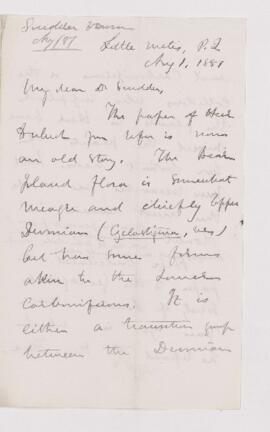 Scudder
Aug 1/81
Little Metis, P.Q
Aug 1. 1881
My dear Dr Scudder,
The paper of
you refer is now
an old story. The Bear
Island flora is somewhat
meagre and chiefly Upper
Devonian (
but has some forms
akin to the Lower
Carboniferous. It is
either a transition group
between the Devonian